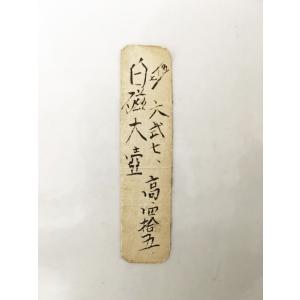 六弍七、高、四拾五
白磁大壺